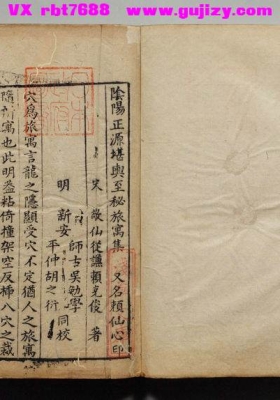 VX rbt7688
www.gujizy.com
陰陽正源堪輿至秘旅寓集 又名賴仙心印
宋 從謙賴文俊 著
明 新安 師古吳勉學
平仲胡之衍 同校
穴為旅寓言龍之隱顯受穴不定猶人之旅寓
隨所寓也此明盖粘倚撞架空反棄八穴之裁